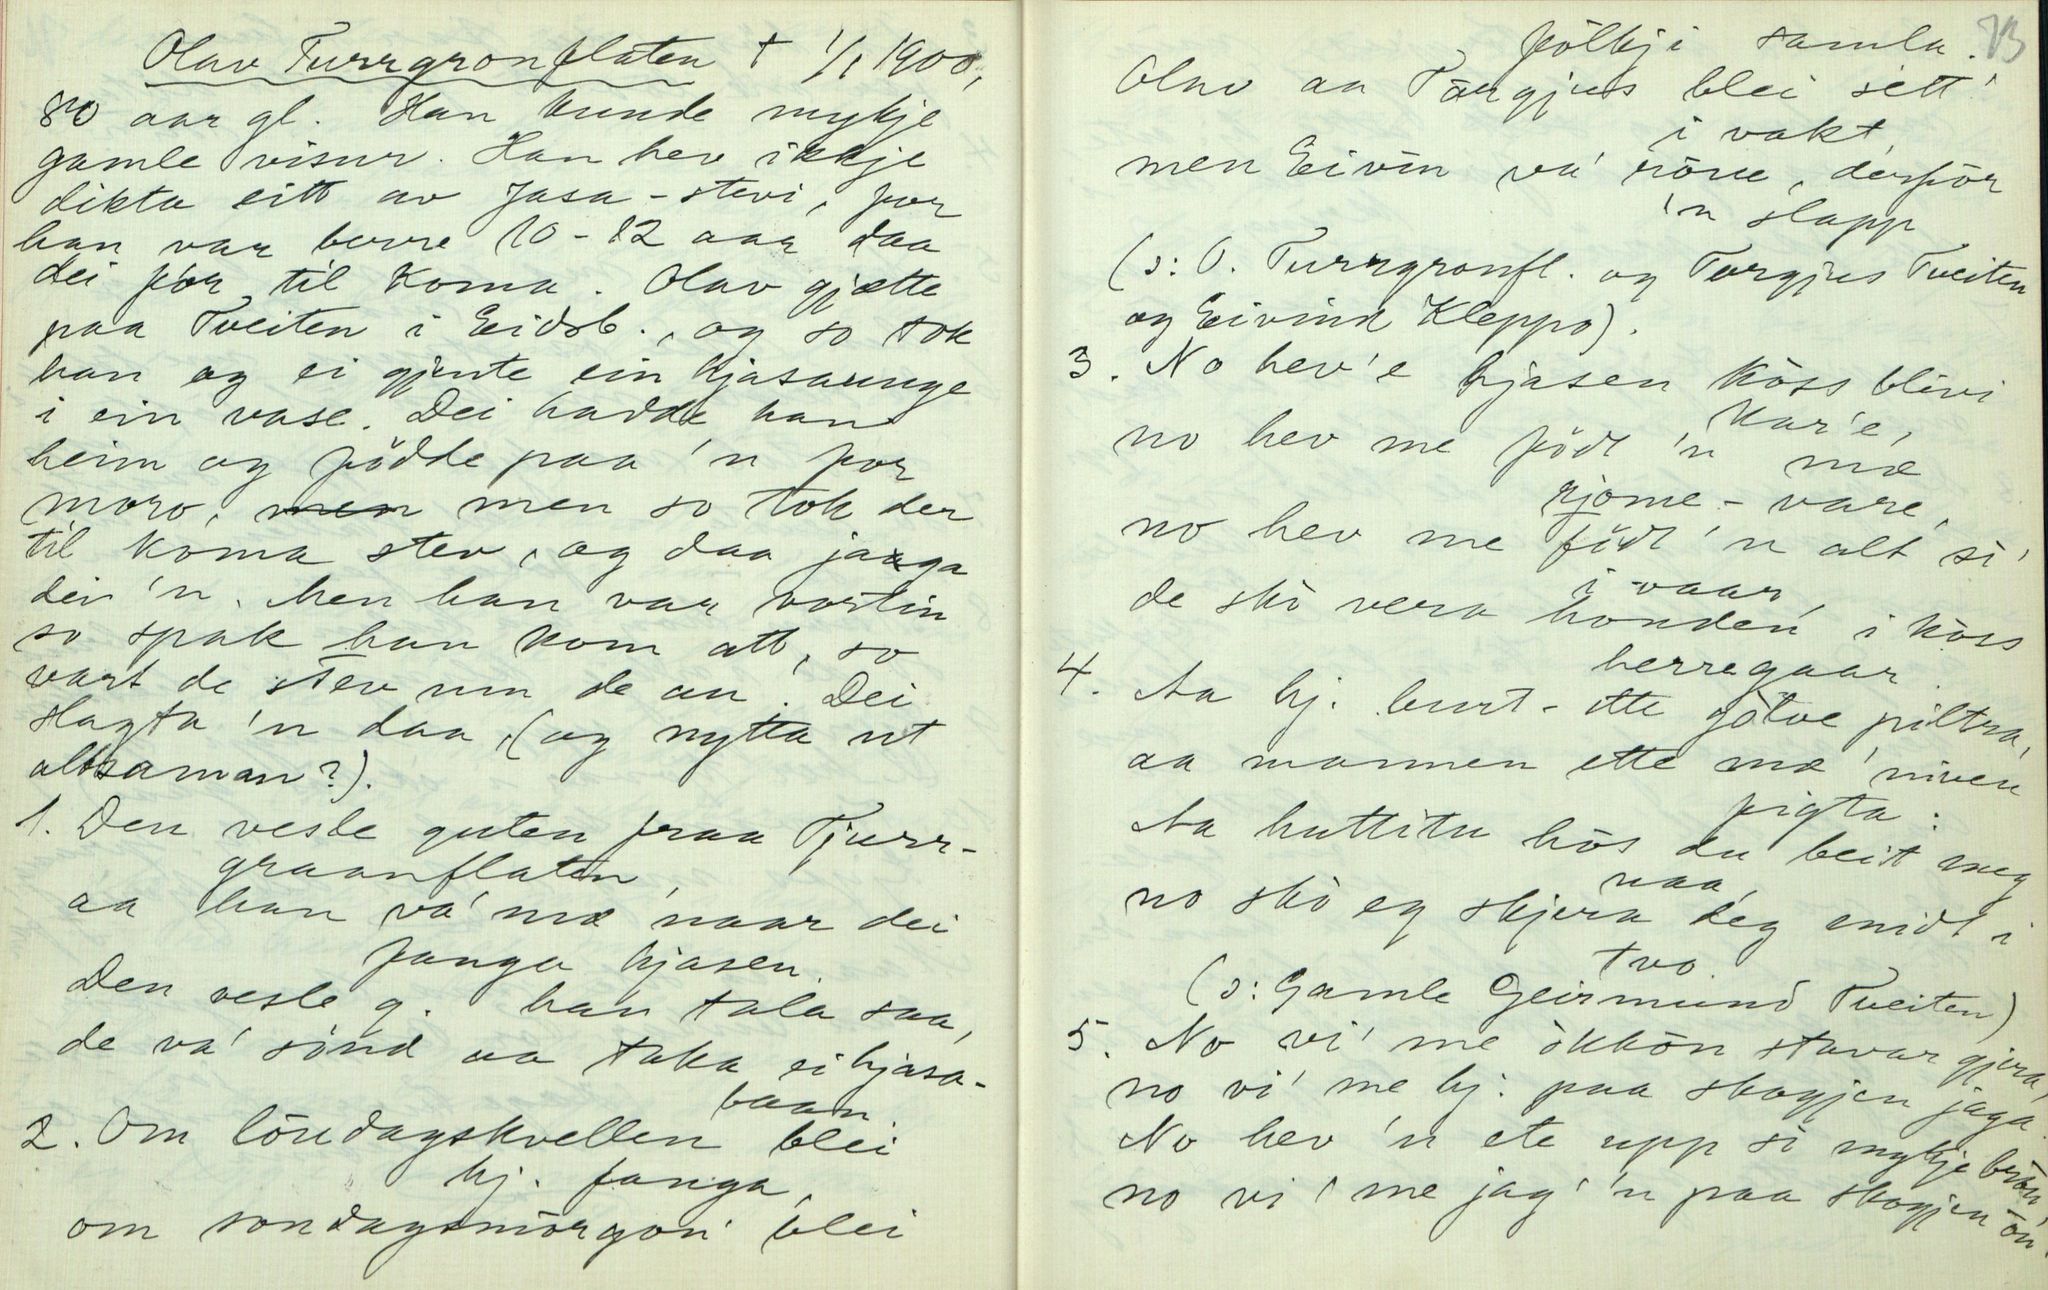 Olav Turrgronflaten † 1/1 1900,
80 aar gl. Han kunde mykje
gamle visur. Han hev ikkje
dikta eitt av Jasa-stevi, for
han var berre 10-12 aar daa
dei fór til Koma. Olav gjætte
paa Tveiten i Eidsb., og so tok
han og ei gjente ein hjasaunge
i ein vase. Dei hadde han
heim og födde paa 'n for
moro, men men so tok der
til koma stev, og daa jaga
dei 'n. Men han var vortin
so spak han kom att, so
vart de stev um de au. Dei
slagta 'n daa, (og nytta ut
altsaman?).
1. Den vesle guten fraa Tjurr-
graanflaten,
aa han va' mæ naar dei
fanga hjasen.
Den vesle g. han tala saa,
de va' sönd aa taka ei hjasa-
baan
2. Om löudagskvellen blei
hj. fanga,
om sondagsmörgon blei
73
fölkji samla.
Olav aa Tårgjus blei sett'
i vakt,
men Eivin va' röue, derför
'n slapp
(ɔ: O. Turrgronfl. og Torgjus Tveiten
og Eivind Kleppo).
3. No hev'e hjasen köss blivi
kar'e,
no hev me födt 'n mæ
rjome-vare,
no hev me födt 'n alt si'
i vaar,
de skò vera honden i köss
herregaar.
4. Aa hj. burt-ette götve piltra,
aa mannen ette mæ niven
figta:
Aa huttitu hös du beit meg
naa,
no skò eg skjera deg midt i
tvo.
(ɔ: Gamle Geirmund Tveiten)
5. No vi' me ökkön stavar gjera,
no vi' me hj. paa skogjen jaga.
No hev 'n ete upp so mykje brön,
no vi' me jag' 'n paa skogjen ön.